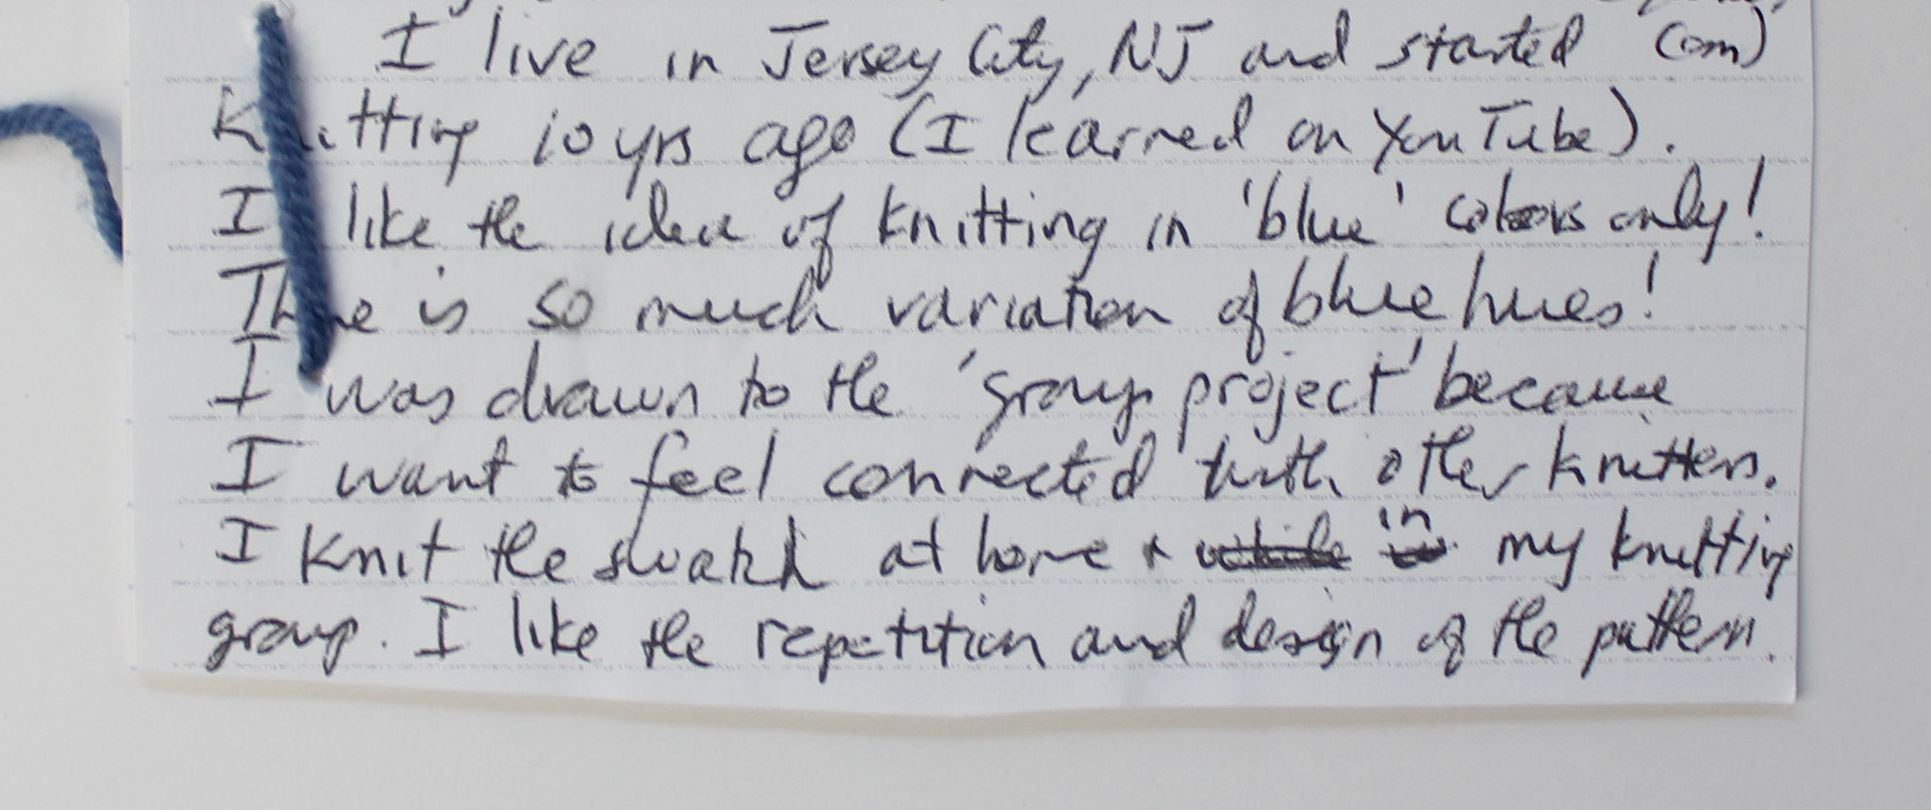 I live in Jersey City, NJ and started (om)
Knitting 10 yrs ago (I learned on YouTube).
I like the idea of knitting in 'blue' colors only!
There is so much variation of blue hues!
I was drawn to the 'group project' because
I want to feel connected with other knitters.
I knit the swatch at home + in my knitting
group. I like the repetition and design of the pattern.